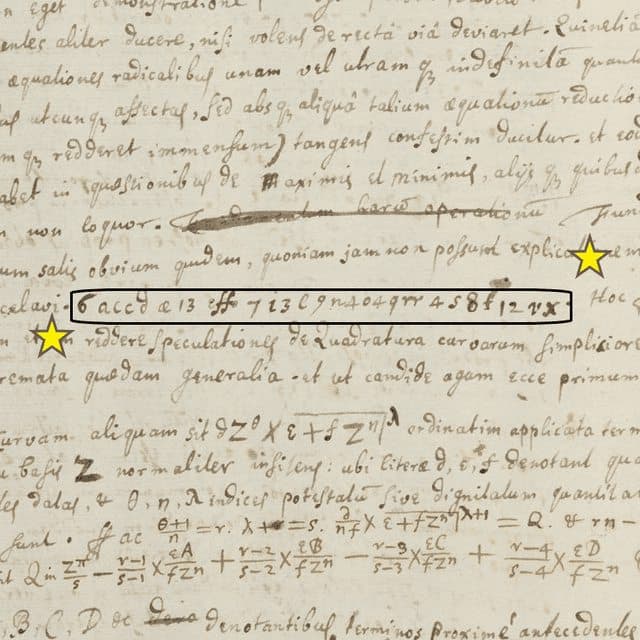 eget demonstratione
aliter ducere, nisi volens de rectâ viâ deviaret. Quinetiā
æquationes radicalibus unam vel utram qꝫ indefinitā
utcunqꝫ affectas, sed absqꝫ aliquâ talium æquationū reductio
m qꝫ redderet immensum) tangens confestim ducitur. et
in quæstionibus de Maximis et minimis, alijs qꝫ quibus
non loquor. operationū
um satis obvium quidem, quoniam jam non possum explic
celavi. 6 accd æ 13 eff 7 i 3 l 9 n 4 o 4 q rr 4 s 8 t 12 v x. Hoc
reddere speculationes de Quadratura curvarum simplicior
quædam generalia. et ut candide agam ecce primum
curvam aliquam sit dZ^θ × e+fZ^η|^λ ordinatim applicata term
basis Z normaliter insistens: ubi literæ d, e, f denotant
datas, & θ, η, λ indices potestatū sive dignitatum quantit
sunt. ffac θ+1/η = r. λ+r = s. d/ηf × e+fZ^η|^λ+1 = Q. & rη −
Q in Z^π/s − r−1/s−1 × eA/fZ^η + r−2/s−2 × eB/fZ^η − r−3/s−3 × eC/fZ^η + r−4/s−4 × eD/fZ^η
B, C, D &c denotantibus terminos proximè antecedentes